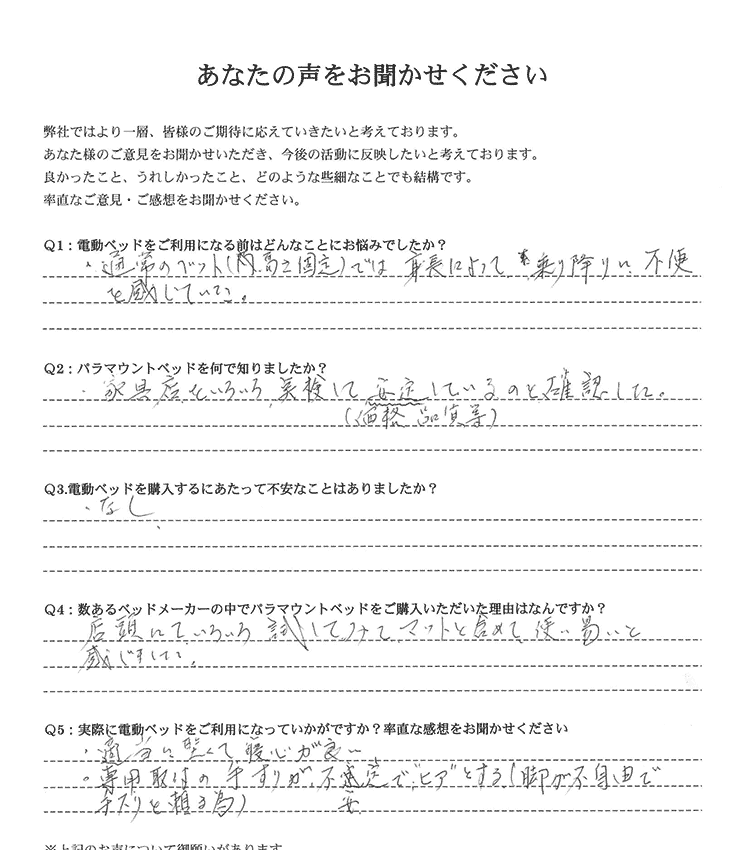 あなたの声をお聞かせください
弊社ではより一層、皆様のご期待に応えていきたいと考えております。
あなた様のご意見をお聞かせいただき、今後の活動に反映したいと考えております。
良かったこと、うれしかったこと、どのような些細なことでも結構です。
率直なご意見・ご感想をお聞かせください。
Q1：電動ベッドをご利用になる前はどんなことにお悩みでしたか？
・通常のベット(高さ固定)では 身長によって 乗り降りに 不便
を感じていた。
Q2：パラマウントベッドを何で知りましたか？
・家具店をいろいろ 実検して 安定しているのを確認した。
(価格 品質等)
Q3.電動ベッドを購入するにあたって不安なことはありましたか？
・なし
Q4：数あるベッドメーカーの中でパラマウントベッドをご購入いただいた理由はなんですか？
店頭にていろいろ 試してみて、マットを含めて、使い易いと
感じました。
Q5：実際に電動ベッドをご利用になっていかがですか？率直な感想をお聞かせください
・適当に堅くて 寝心が良い
・専用取付の手すりが、不安定で、とする(脚が不自由で
手スリを頼る為)
※上記のお声について御願いがあります